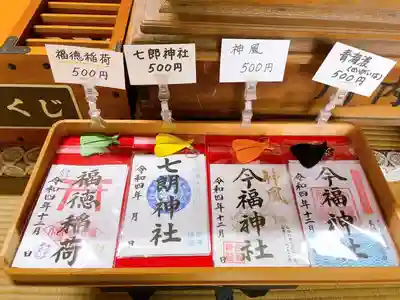 福徳稲荷
500円
七郎神社
500円
神風
500円
500円
くじ
令和四年十二月 日
福徳稲荷
令和四年 月 日
七郎神社
令和四年十二月 日
神風
今福神社
令和四年十二月 日
今福神社